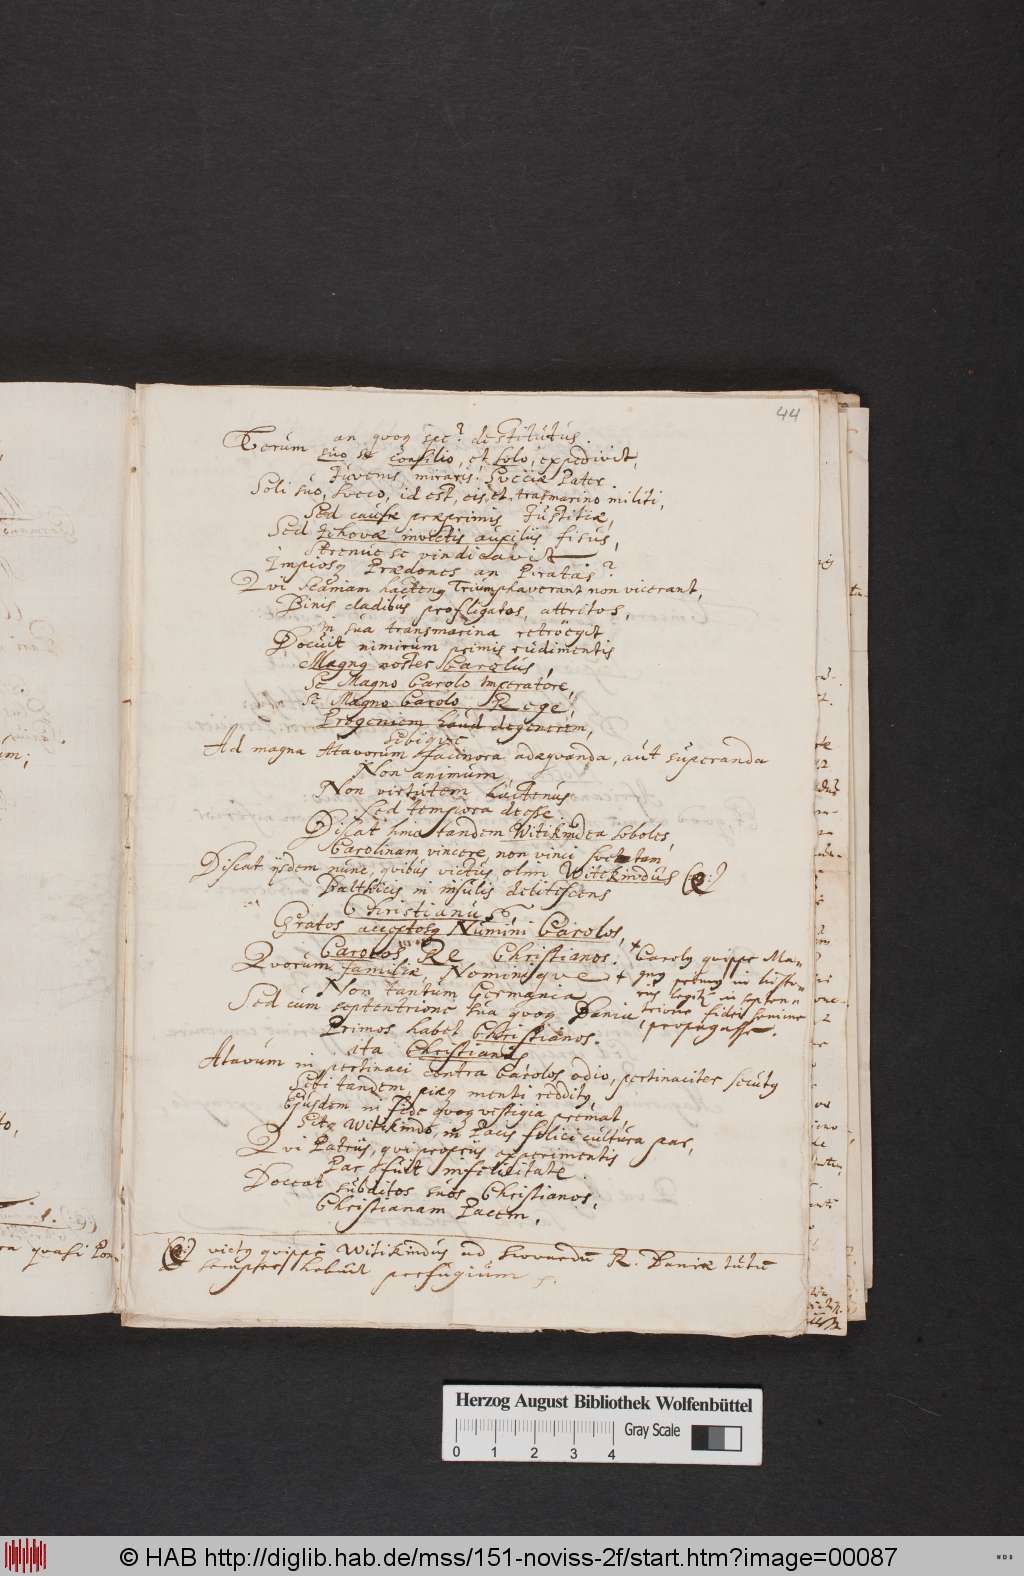 44
an quoq spe? destitutus.
Verum suo se consilio, et solo, expedivit,
Juvenis miraris! Sveciæ Pater.
Soli suo, sveco, id est, eis, et trasmarino militi,
Sed causæ præprimis Justitiæ,
Sed Jehovæ invictis auxiliis fisus,
Strenue se vindicavit
Impiosq Prædones an Piratas?
Qvi Scaniam hactenq Triumphaverant non vicerant,
Binis cladibus profligatos, attritos,
in sua transmarina retroegit
Docuit nimirum primis rudimentis
Magnq noster Carolus,
Se Magno Carolo Imperatore,
Se Magno Carolo Rege,
Progeniem haud degenerem,
sibique
Ad magna Atavorum facinora adæqvanda, aut superanda
Non animum,
Non virtutem hactenus
Sed tempora deesse.
Discat hinc tandem Witikindea soboles,
Carolinam vincere, non vinci suetam
Discat ijsdem nunc, qvibus victus olim Witekindus (@:)
Balthicis in insulis delitescens
Christianus,
Gratos acceptosq Numini Carolos,
Carolos Re Christianos:
Qvorum familiæ, Nominique +
Non tantum Germania
Sed cum septentrione sua quoq Dania
Primos habet Christianos.
+ Carolq quippe Mag
propagasse.
ita Christianus
Atavum in pertinaci contra Carolos odio, pertinaciter secutq
Sibi tandem, piæq menti redditq
Ejusdem in fide quoq vestigia premat,
Sitq Witikindo, in Pacis felici cultura par,
Qvi Patriis, qvi propriis experimentis
Par fuit infelicitate.
Doceat subditos suos Christianos,
Christianam Pacem.
(@:) victq qvippe Witikindus ad R. Daniæ tutu
semper habuit perfugium
Herzog August Bibliothek Wolfenbüttel
Gray Scale
0 1 2 3 4
© HAB http://diglib.hab.de/mss/151-noviss-2f/start.htm?image=00087